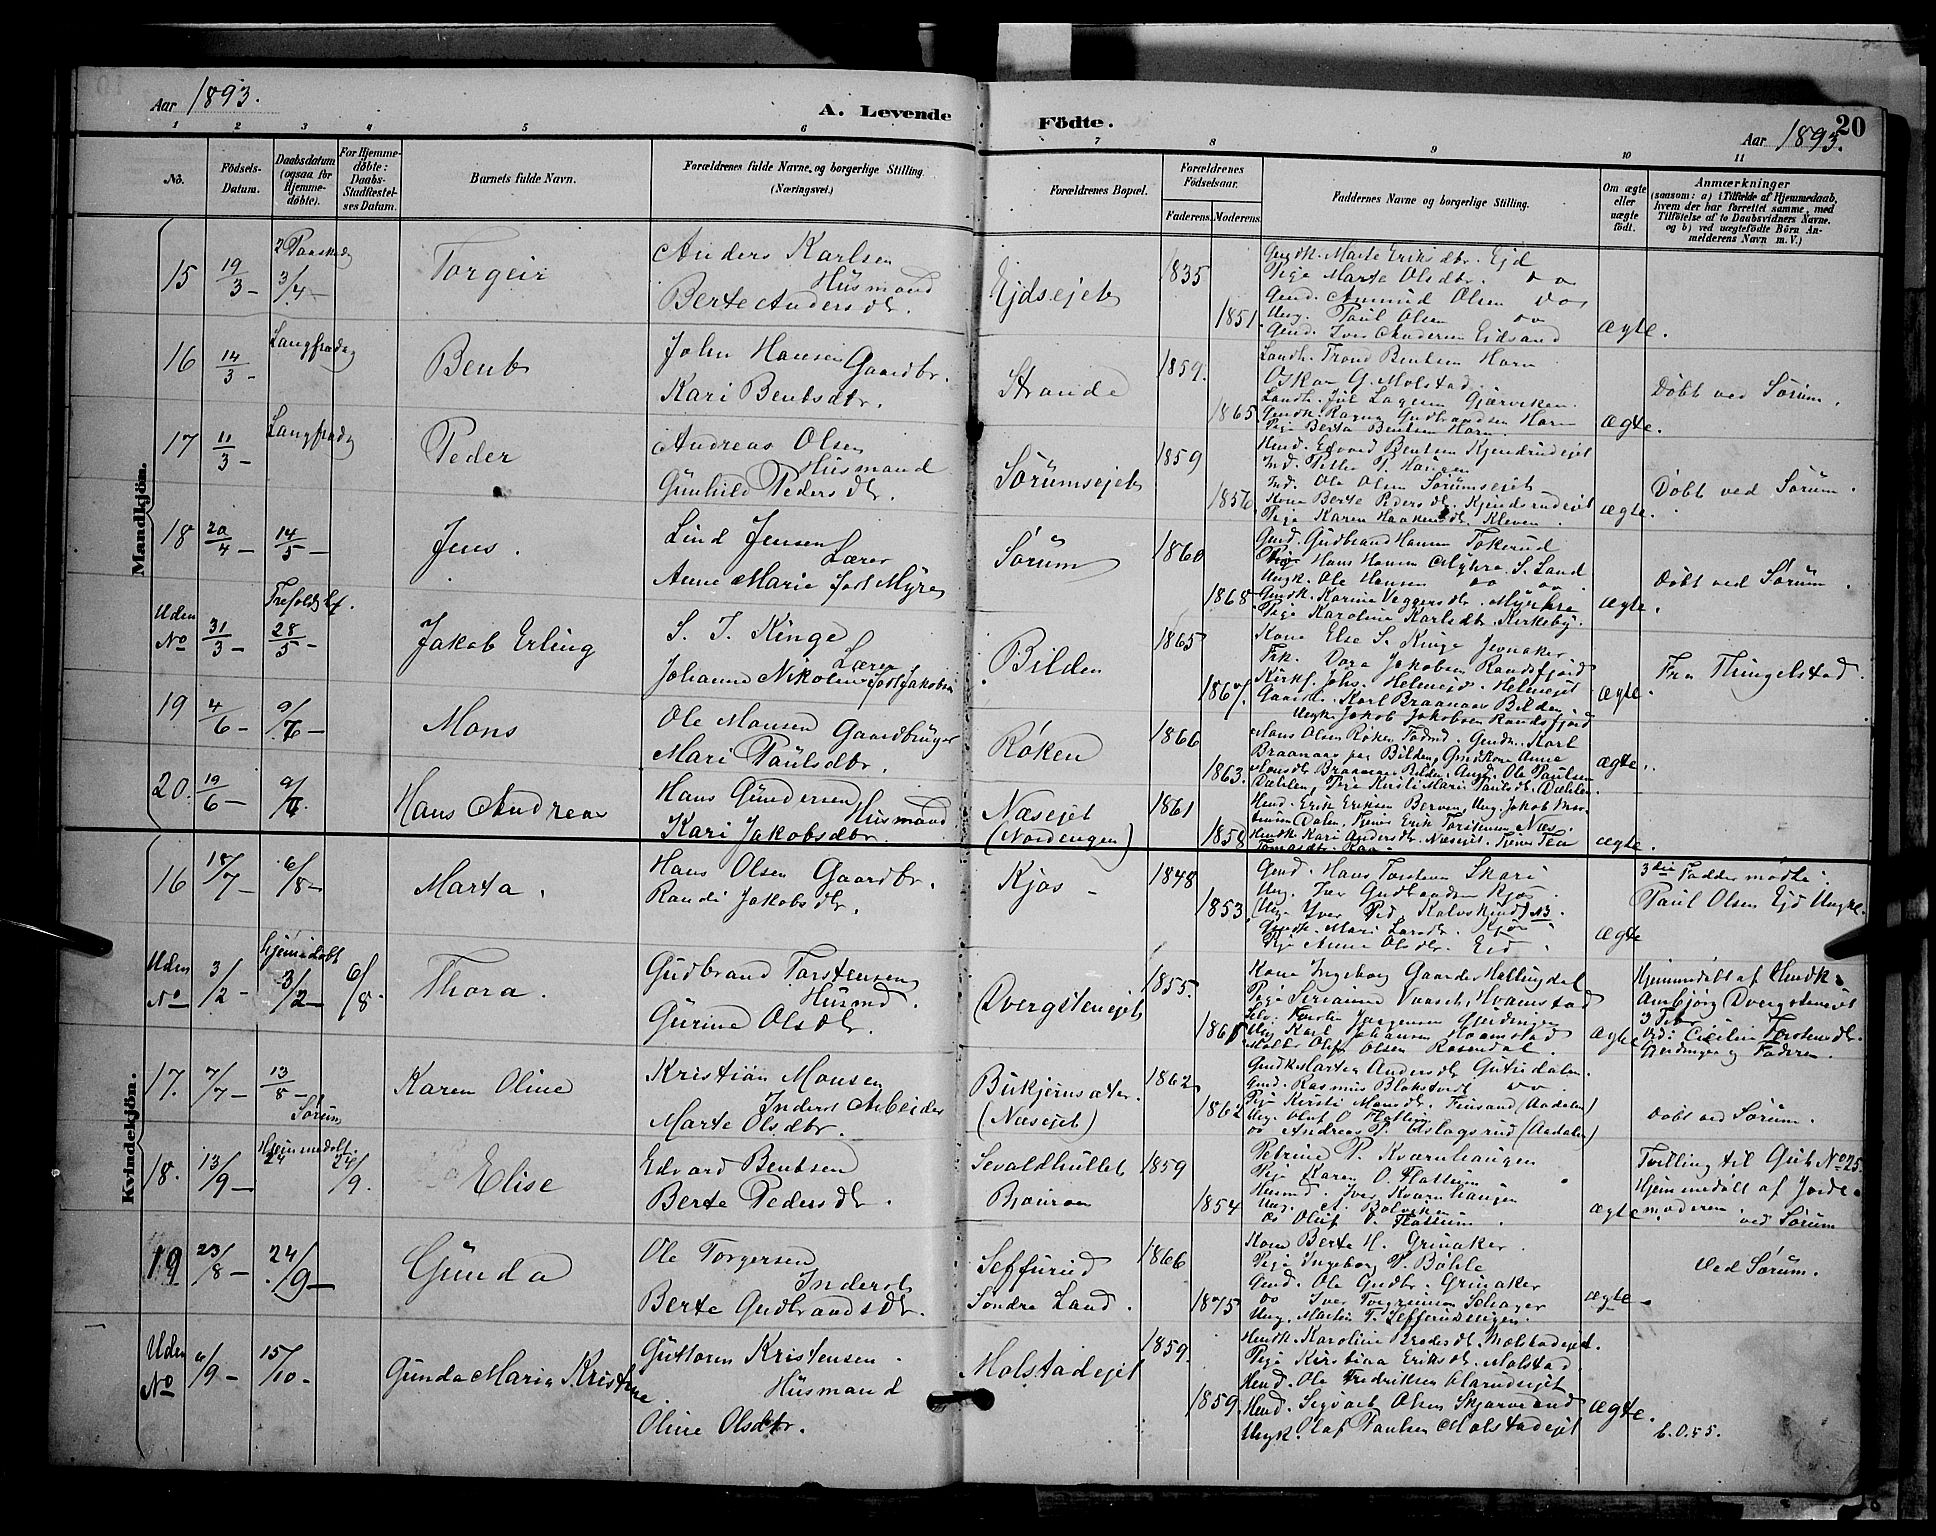 Aar 1893.
A. Levende Födte.
Aar 1893.
20
1 2 3 4 5 6 7 8 9 10 11
No.
Födsels-Datum.
Daabsdatum (ogsaa for Hjemmedöbte).
For Hjemmedöbte: Daabs-Stadfæstelses Datum.
Barnets fulde Navn.
Forældrenes fulde Navne, og borgerlige Stilling. (Næringsvei.)
Forældrenes Bopæl.
Forældrenes Födselsaar.
Faderens. Moderens.
Faddernes Navne og borgerlige Stilling.
Om ægte eller uægte födt.
Anmærkninger
(saasom: a) i Tilfælde af Hjemmedaab, hvem der har forrettet samme, med Tilföielse af to Daabsvidners Navne. og b) ved uægtefödte Börn Anmelderens Navn m. V.)
Mandkjön.
15 19/3 - 2 Paaskedg 3/4 - Torgeir
Anders Karlsen
Husmand
Berte Andersdtr.
Ejdsejet 1835 1851
Gmdk. Marte Eriksdtr. Ejd
Pige Marte Olsdtr. do
Gmd. Amund Olsen do
Ung. Paul Olsen do
Gmd. Iver Andersen Eidsand
ægte.
16 14/3 - Langfredag Bent
John Hansen
Gaardbr.
Kari Bentsdtr.
Strande 1859. 1865
Landh. Trond Bentsen Horn
Oskar G. Molstad
Gmdk. Ragna Gudbrandsen Horn
Pige Berta Bentsen Horn
ægte.
Döbt ved Sörum.
17 11/3 - Langfredag Peder
Andreas Olsen
Husmand
Gunhild Pedersdtr.
Sörumsejet 1859 1856
Hmd. Edvard Bentsen Kjendrudejet
Ind. Petter P. Hansen
Ind. Ole Olsen Sörumsejet
Kone Berte Pedersdtr. Kjendsrudejet
Pige Karen Haakensdtr. Kleven
ægte.
Döbt ved Sörum.
18 20/4 - 14/5 - Jens.
Lind Jensen
Lærer
Anne Marie föd Myre
Sörum 1860 1868
Gmd. Gudbrand Hansen Tokerud
Hans Hansen Myhre S. Land
Ungk. Ole Hansen do do
Gmdk. Karine Veggersdtr. Myhre
Pige Karoline Karlsdtr. Kirkeby.
ægte.
Döbt ved Sörum.
Uden No 31/3 - Trefoldigh. 28/5 - Jakob Erling
S. J. Kinge
Lærer
Johanne Nikoline föd Jakobsen
Bilden 1865 1867.
Kone Else S. Kinge Jevnaker
Frk. Dora Jakobsen Randsfjord
Kirks. Johs. Helmejd Helmejet
Gaardbr. Karl Braanaas Bilden
Ungk. Jakob Jakobsen Randsfjord
ægte.
Fra Thingelstad.
19 4/6 - 9/7 - Mons
Ole Monsen Gaardbruger
Mari Paulsdtr.
Röken 1866 1863.
Mons Olsen Röken Födrd. Gmdk. Karl
Braanaas paa Bilden, Gmdkone Anne
Monsdtr. Braanaas Bilden, Ungk. Ole Paulsen
Dæhlen, Pige Kirsti Mari Paulsdtr. Dæhlen.
ægte.
20. 19/6 - 9/7. Hans Andreas
Hans Gundersen
Husmand
Kari Jakobsdtr.
Næsejet (Nordengen) 1861 1858
Hmd. Erik Eriksen Berven, Ung. Jakob
Dalen, Tjener Erik Torstensen Næs.
Hmdk. Kari Andersdtr. Næsejet. Tjener Tea
ægte.
Kvindekjön.
16 18/7 - 6/8 - Marta.
Hans Olsen Gaardbr.
Randi Jakobsdtr.
Kjos - 1848 1853.
Gmd. Hans Torstensen Skari
Ung. Iver Gudbrandsen Kjos
Ung. Iver Ped. Kalvskind NB.
Gmdk. Mari Larsdtr. Kjos
Pige Anne Olsdtr. Eid
ægte
3die Fadder mödte:
Paul Olsen Ejd Ungk.
Uden No 3/2 - Hjemmedöbt 3/2 - 6/8. Thora.
Gudbrand Torstensen
Husmd.
Gurine Olsdtr.
Dvergstenejet 1855. 1865
Kone Ingeborg Gaarder Hallingdal
Pige Serianna Vaaset, Hvamstad
Selv. Torsten Jørgensen Gjerdingen
Ung. Karl Johansen Hvamstad
Olsen Rosendal.
ægte
Hjemmedöbt af Hmdk.
Ambjörg Dvergstenejet
3 Febr.
Vid: Cicilie Torstensdtr.
Gjerdingen og Faderen.
17. 7/7 - 13/8 - Sörum Karen Oline
Kristian Monsen
Inderst Arbeider
Marte Olsdtr.
(Næsejet) 1862 1862
Gmdk Marten Andersdtr. Gutudalen.
Gmd. Rasmus Blokstvedt do
Pige Kirsti Monsdtr. Finsand (Aadalen)
Ung. Oluf O. Flattum
do Andreas P. Islagsrud (Aadalen)
Döbt ved Sörum.
18. 13/9 - Hjemmedöbt. 24 24/9. Elise
Edvard Bentsen
Berte Pedersdtr.
Sevaldhullet 1859 1854
Petrine P. Kværnhaugen
Pige Karen O. Flattum
Husmd. Iver Kværnhaugen
do Oluf O. Flattum.
ægte
Tvilling til Gut No 25.
Hjemmedöbt af Jordemoderen.
ved Sörum
19 23/8 - 24/9 - Gunda
Ole Torgersen
Inderst
Berte Gudbrandsdtr.
Seffurud Söndre Land. 1866 1875
Kone Berte H. Grinaker.
Pige Ingeborg P. Böhle
Gmd. Ole Gudbr. Grinaker
do Iver Torgrimsen Schager
Ung. Martin T. Seffurudengen.
ægte
Ved Sörum.
Uden No 6/9 - 15/10 - Gunda Maria Kristine
Guttorm Kristensen
Husmand
Oline Olsdtr.
Molstadejet 1859. 1859.
Hmdk. Karoline Brodersdtr. Molstadejet.
Pige Kirstina Eriksdtr. Molstad
Hmd. Ole Fredriksen Aarudsejet
Hmd. Sigvart Olsen Skjarvrand
Ungk. Olaf Paulsen Molstadejet
ægte.
6.0.55.